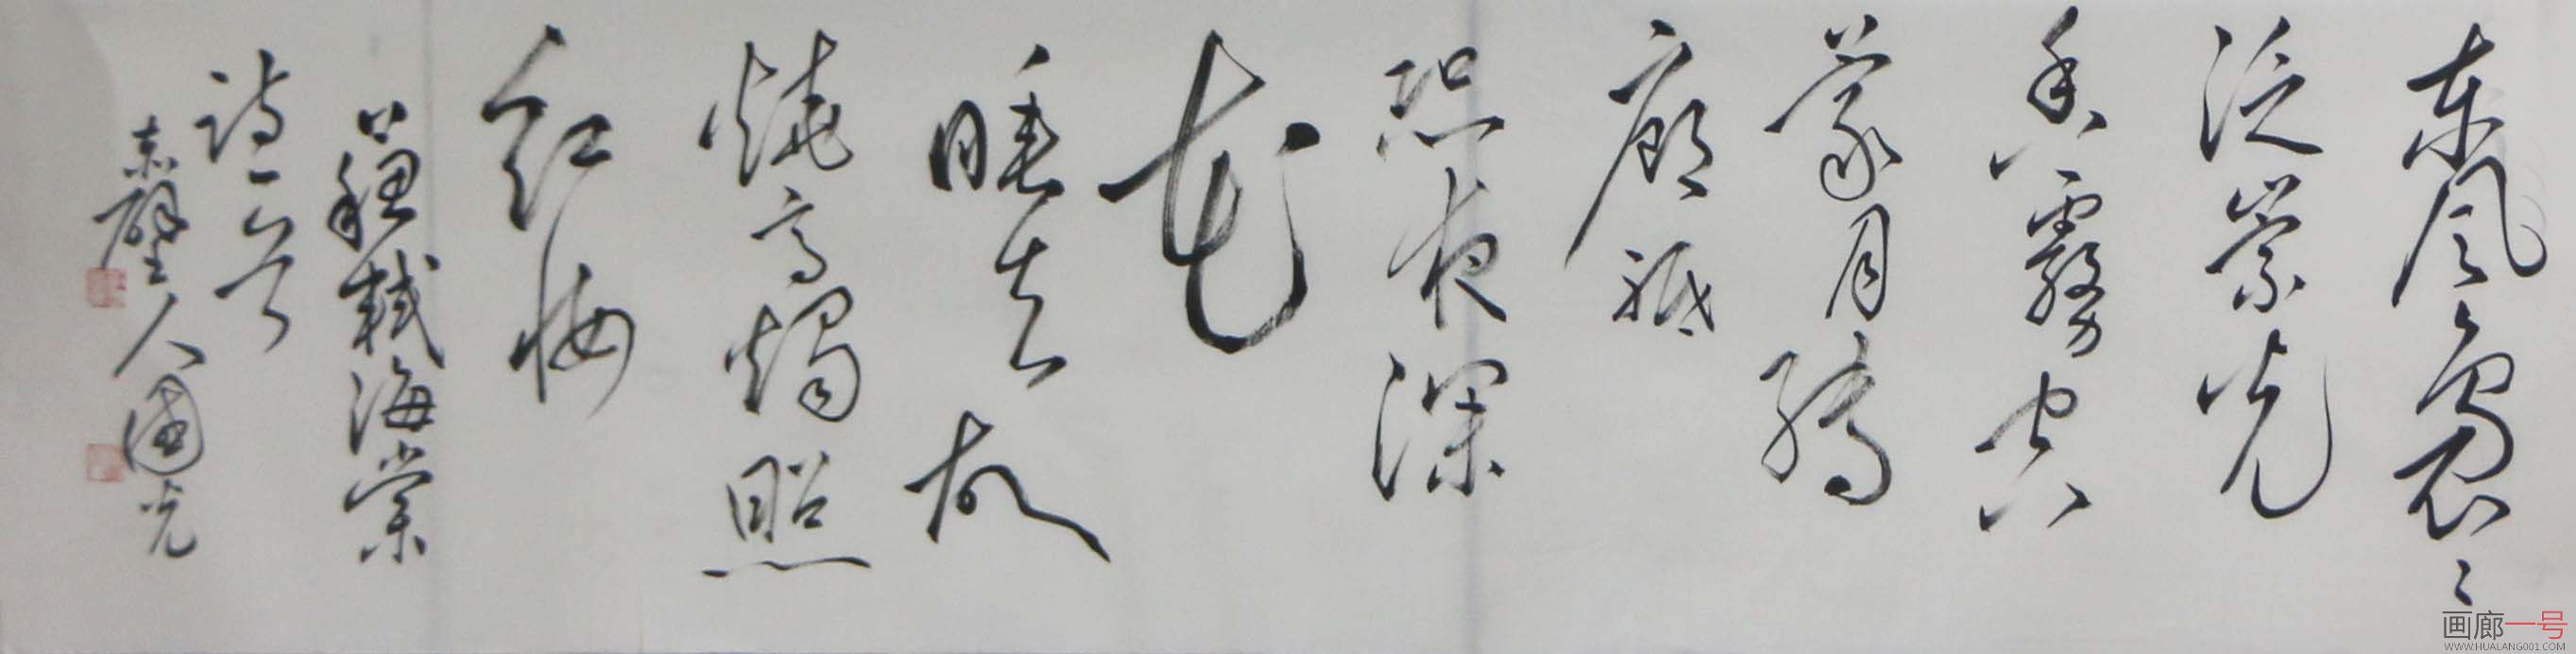 東風裊々
泛崇光
香霧空
蒙月轉
廊祗
恐夜深
花
睡去故
燒高燭照
紅妆
穌軾海棠
詩一首
赤壁人國光
画廊一号
WWW.HUALANG001.COM